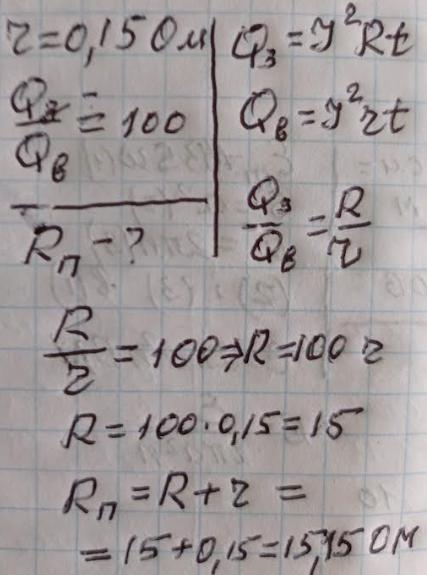 r = 0,15 Ом
Qз/Qв = 100
Rп - ?
Qз = I²Rt
Qв = I²rt
Qз/Qв = R/r
R/r = 100 ⇒ R = 100 r
R = 100 · 0,15 = 15
Rп = R + r =
= 15 + 0,15 = 15,15 Ом